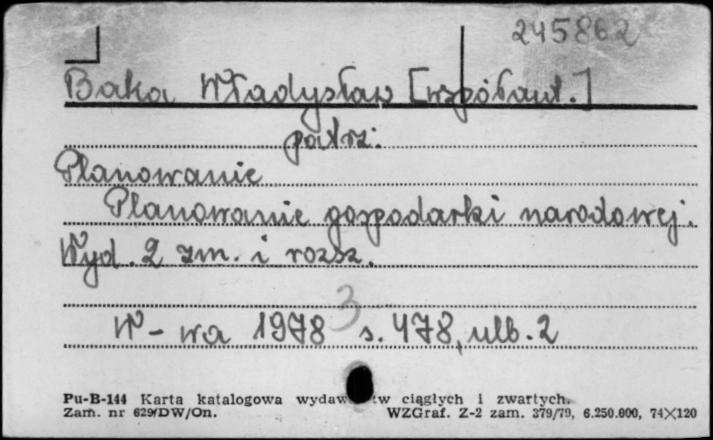 245862
Baka Władysław [współaut.]
patrz:
Planowanie
Planowanie gospodarki narodowej.
Wyd. 2 zm. i rozsz.
3
W-wa 1978 s. 478, ulb. 2
Pu-B-144 Karta katalogowa wydaw tw ciągłych i zwartych.
Zam. nr 629/DW/On. WZGraf. Z-2 zam. 379/79, 6.250.000, 74×120